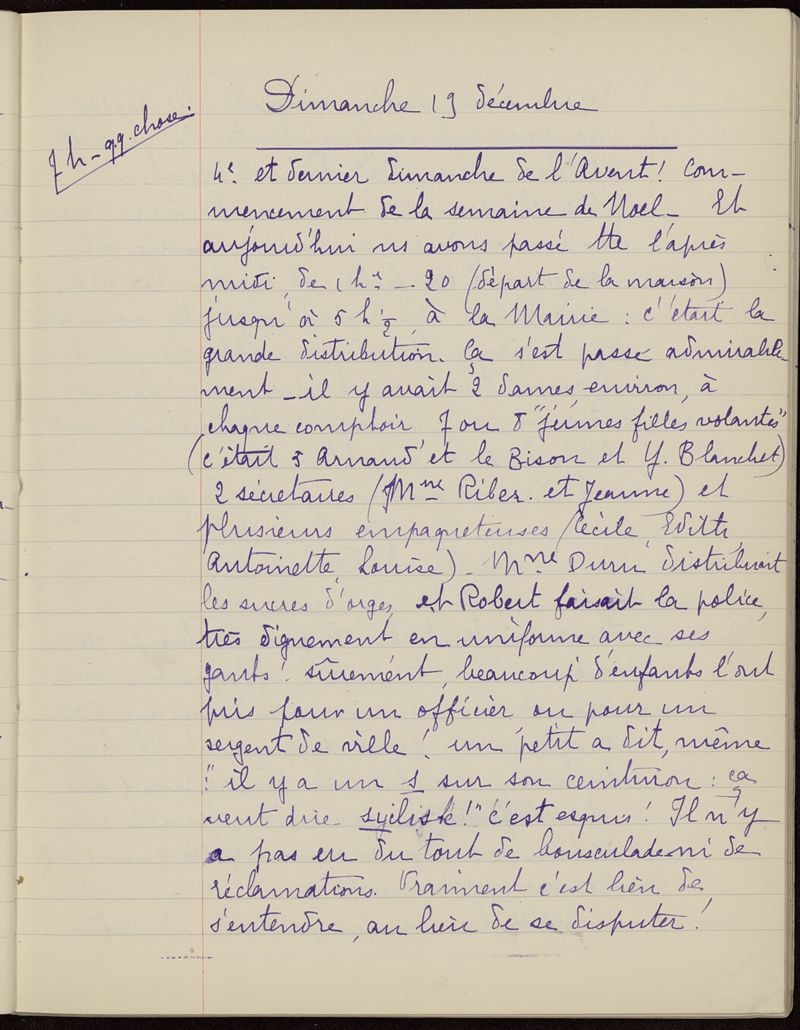 Dimanche 19 décembre
7 h - qq. chose.
4e. et dernier dimanche de l'Avent! Com-
mencement de la semaine de Noel_ Et
aujourd'hui ns avons passé tte l'après
midi, de 1 h - 20 (départ de la maison)
jusqu'à 5 h 1/2, à la Mairie : c'était la
grande distribution. ça s'est passé admirable
ment _ il y avait 2 dames, environ, à
chaque comptoir 7 ou 8 "jeunes filles volantes"
(c'était 3 Arnaud et le Bison et Y. Blanchet)
2 sécretaires (Mme Riber. et Jeanne) et
plusieurs empaqueteuses (Cécile, Edith,
Antoinette, Louise)_ Mme Duru distribuait
les sucres d'orges, et Robert faisait la police,
très dignement en uniforme avec ses
gants! sûrement, beaucoup d'enfants l'ont
pris pour un officier, ou pour un
sergent de ville! un petit a dit, même
"il y a un s sur son ceinturon : ça
veut dire _ !" c'est esquis! Il n'y
a pas eu du tout de bousculade ni de
réclamations. Vraiment c'est bien de
s'entendre, au lieu de se disputer!